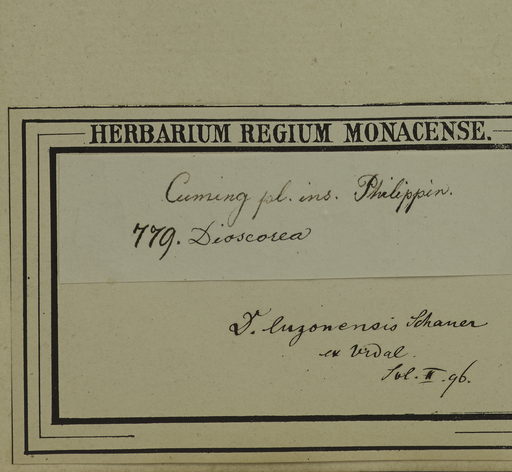 HERBARIUM REGIUM MONACENSE.
Cuming pl. ins. Philippin.
779. Dioscorea
D. luzonensis Schauer
ex Vidal.
II. 96.